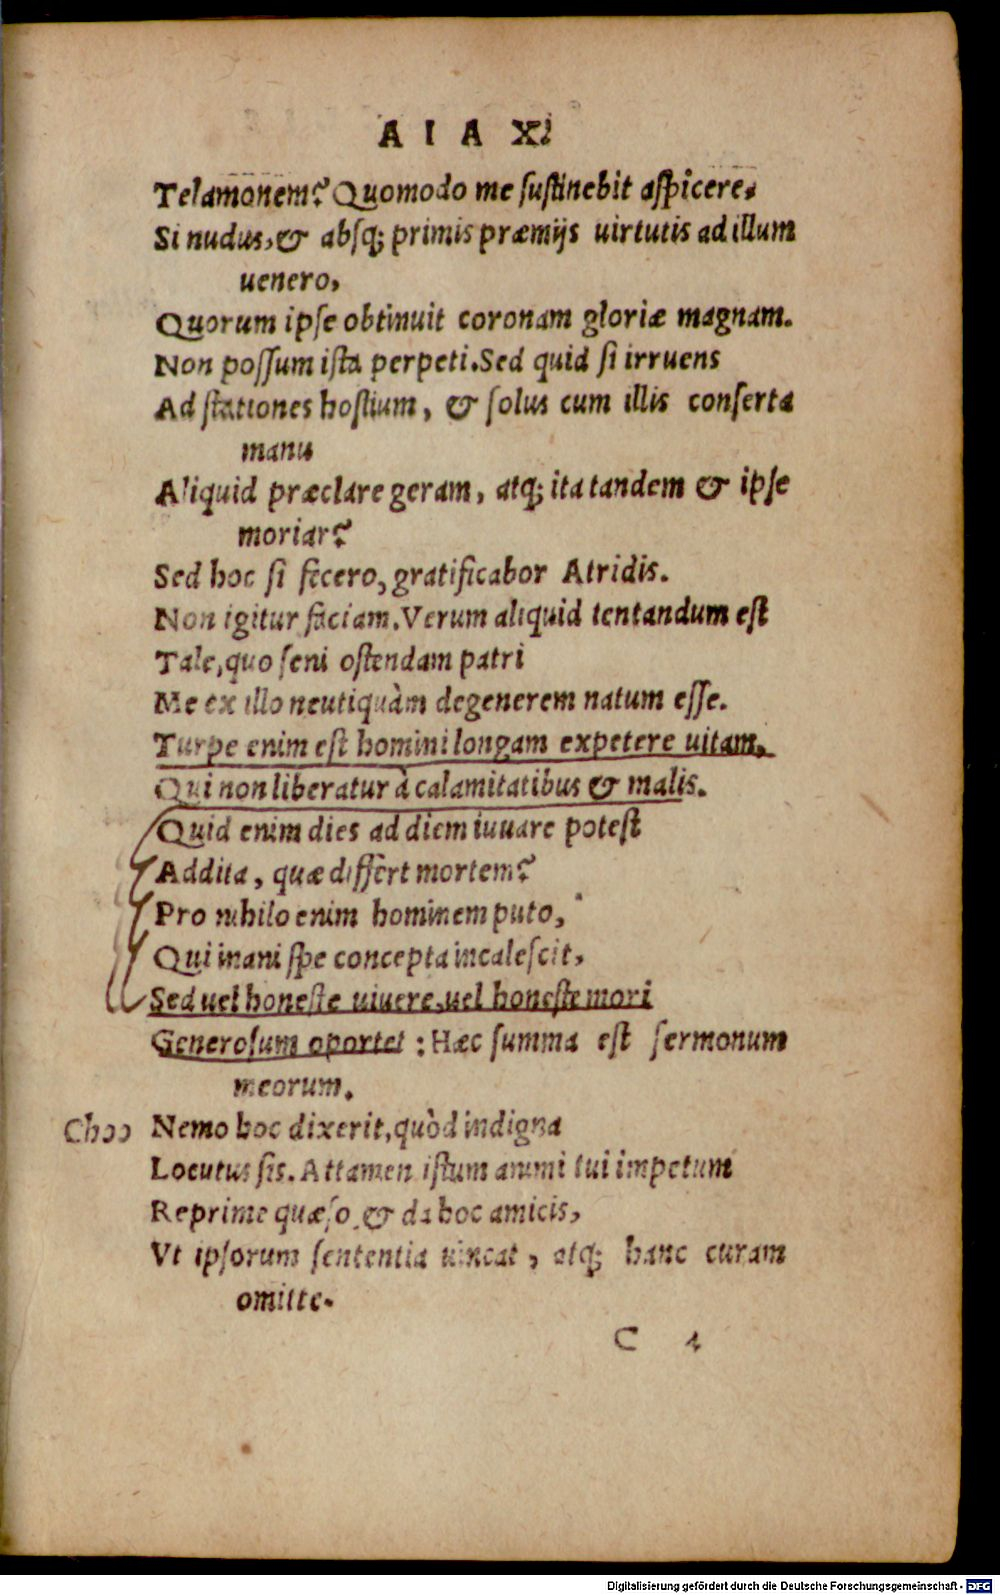 AIAX
Telamonem? Quomodo me sustinebit aspicere,
Si nudus, & absq; primis præmijs uirtutis ad illum
uenero,
Quorum ipse obtinuit coronam gloriæ magnam.
Non possum ista perpeti. Sed quid si irruens
Ad stationes hostium, & solus cum illis conserta
manu
Aliquid præclare geram, atq; ita tandem & ipse
moriar?
Sed hoc si fecero, gratificabor Atridis.
Non igitur faciam. Verum aliquid tentandum est
Tale, quo seni ostendam patri
Me ex illo neutiquàm degenerem natum esse.
Turpe enim est homini longam expetere uitam,
Qui non liberatur à calamitatibus & malis.
Quid enim dies ad diem iuuare potest
Addita, quæ differt mortem?
Pro nihilo enim hominem puto,
Qui inani spe concepta incalescit,
Sed uel honeste uiuere, uel honeste mori
Generosum oportet: Hæc summa est sermonum
meorum.
Nemo hoc dixerit, quòd indigna
Locutus sis. Attamen istum animi tui impetum
Reprime quæso, & da hoc amicis,
Vt ipsorum sententia uincat, atq; hanc curam
omitte.
C 4
Digitalisierung gefördert durch die Deutsche Forschungsgemeinschaft - DFG